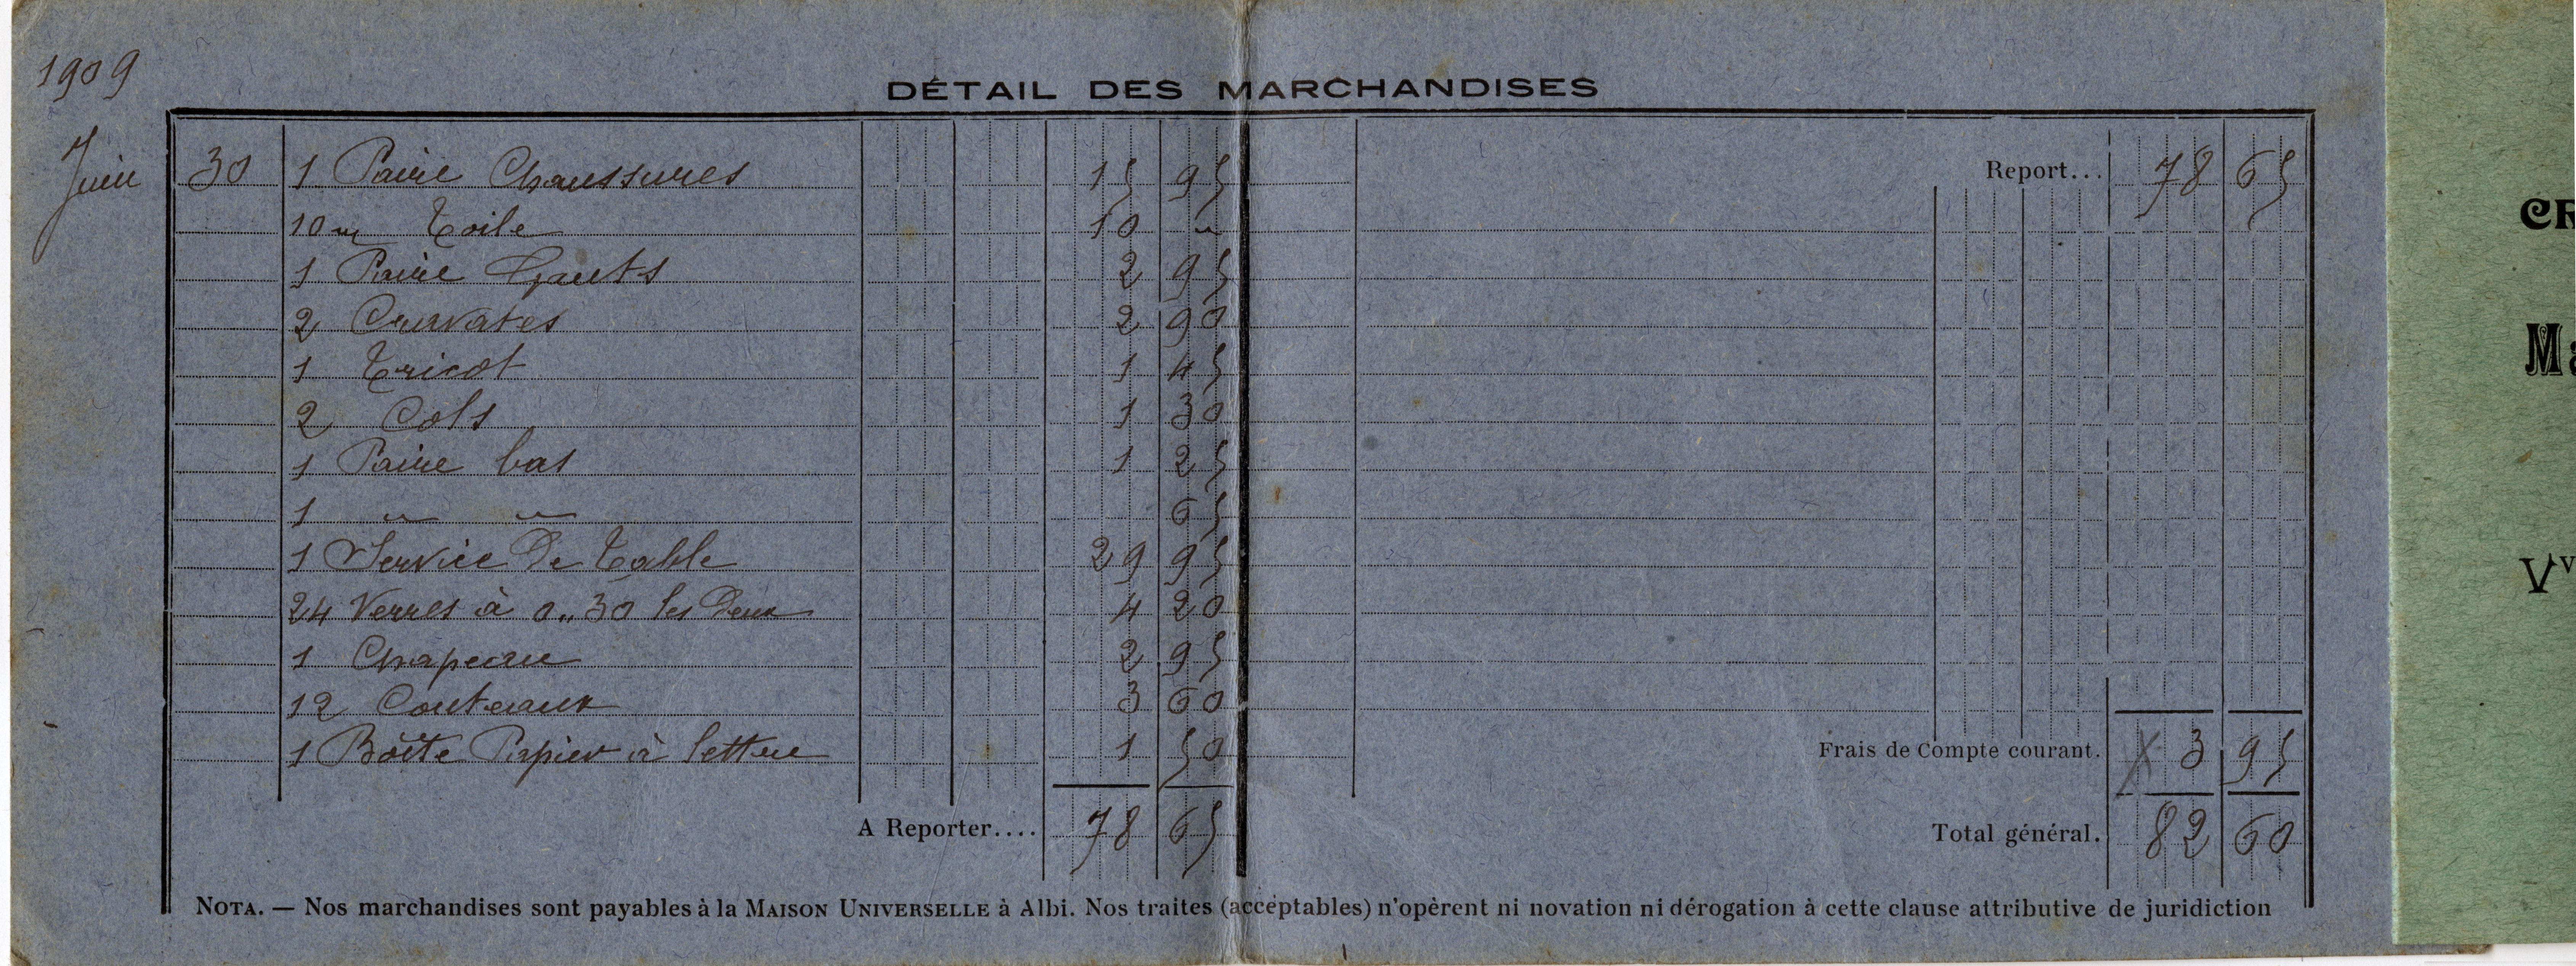 1909
DÉTAIL DES MARCHANDISES
Juin 30 1 Paire Chaussures 15 95
10 m Toile 10 "
1 Paire Gants 2 95
2 Cravates 2 90
1 Tricot 1 45
2 Cols 1 30
1 Paire bas 1 25
1 " " 65
1 Service De Table 29 95
24 Verres à 0,,30 les Deux 4 20
1 Chapeau 2 95
12 Couteaux 3 60
1 Boîte Papier à lettre 1 50
A Reporter.... 78 65
Report... 78 65
Frais de Compte courant. 3 95
Total général. 82 60
NOTA. — Nos marchandises sont payables à la MAISON UNIVERSELLE à Albi. Nos traites (acceptables) n'opèrent ni novation ni dérogation à cette clause attributive de juridiction
CR
Ma
Vv